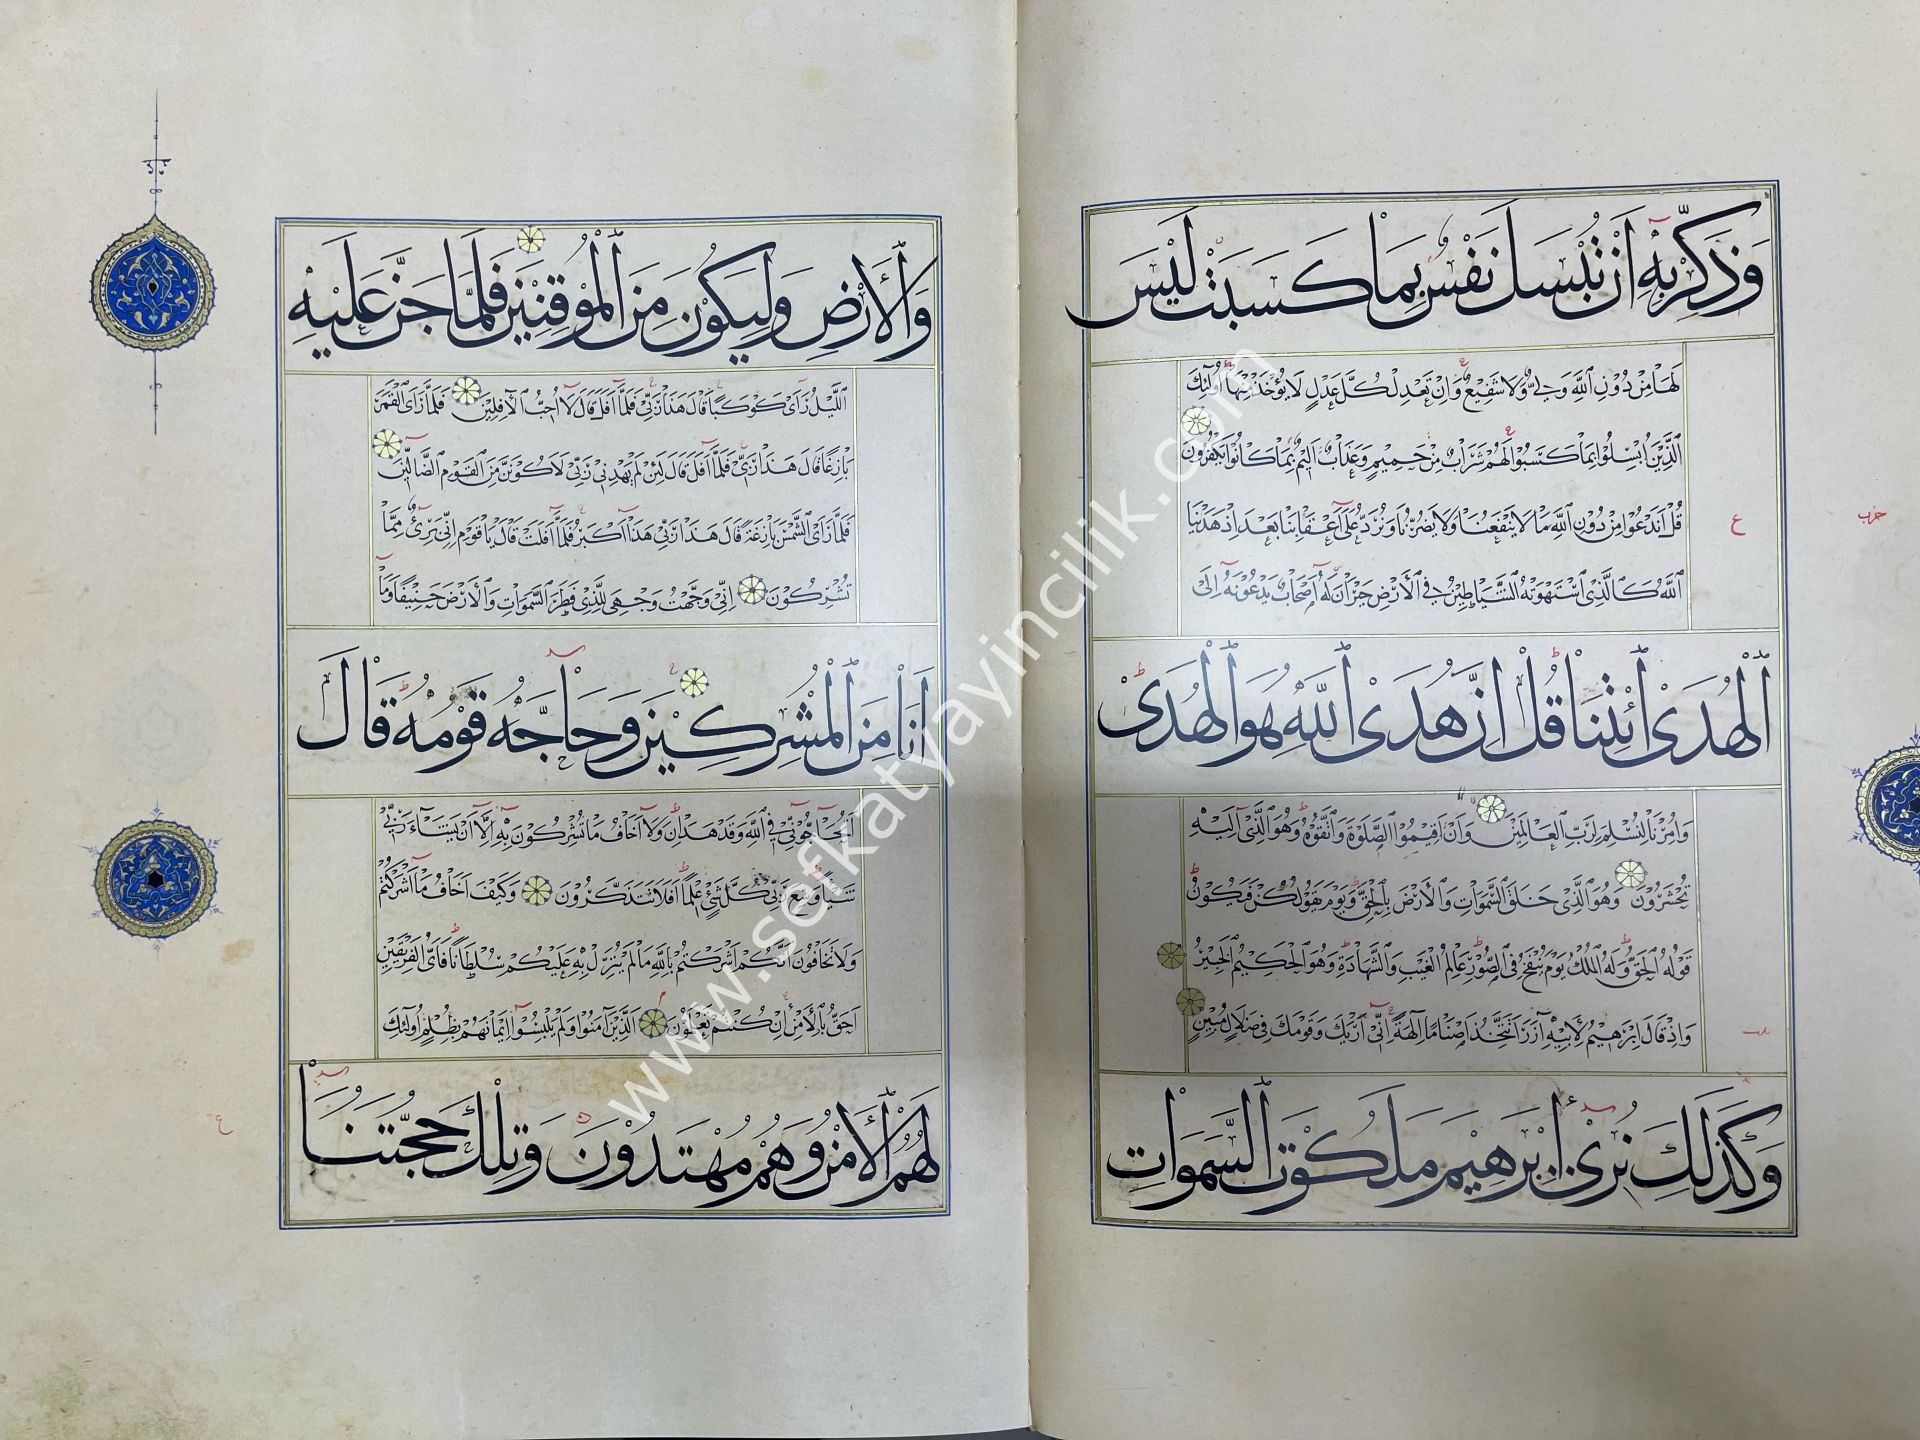 وَذَكِّرْ بِهِ أَنْ تُبْسَلَ نَفْسٌ بِمَا كَسَبَتْ لَيْسَ
لَهَا مِنْ دُونِ اللَّهِ وَلِيٌّ وَلَا شَفِيعٌ وَإِنْ تَعْدِلْ كُلَّ عَدْلٍ لَا يُؤْخَذْ مِنْهَا أُولَٰئِكَ
الَّذِينَ أُبْسِلُوا بِمَا كَسَبُوا لَهُمْ شَرَابٌ مِنْ حَمِيمٍ وَعَذَابٌ أَلِيمٌ بِمَا كَانُوا يَكْفُرُونَ
قُلْ أَنَدْعُوا مِنْ دُونِ اللَّهِ مَا لَا يَنْفَعُنَا وَلَا يَضُرُّنَا وَنُرَدُّ عَلَى أَعْقَابِنَا بَعْدَ إِذْ هَدَانَا
اللَّهُ كَالَّذِي اسْتَهْوَتْهُ الشَّيَاطِينُ فِي الْأَرْضِ حَيْرَانَ لَهُ أَصْحَابٌ يَدْعُونَهُ إِلَى
الْهُدَى ائْتِنَا قُلْ إِنَّ هُدَى اللَّهِ هُوَ الْهُدَى
وَأُمِرْنَا لِنُسْلِمَ لِرَبِّ الْعَالَمِينَ وَأَنْ أَقِيمُوا الصَّلَوٰةَ وَاتَّقُوهُ وَهُوَ الَّذِي إِلَيْهِ
تُحْشَرُونَ وَهُوَ الَّذِي خَلَقَ السَّمَوَاتِ وَالْأَرْضَ بِالْحَقِّ وَيَوْمَ يَقُولُ كُنْ فَيَكُونُ
قَوْلُهُ الْحَقُّ وَلَهُ الْمُلْكُ يَوْمَ يُنْفَخُ فِي الصُّورِ عَالِمُ الْغَيْبِ وَالشَّهَادَةِ وَهُوَ الْحَكِيمُ الْخَبِيرُ
وَإِذْ قَالَ إِبْرَهِيمُ لِأَبِيهِ آزَرَ أَتَتَّخِذُ أَصْنَامًا آلِهَةً إِنِّي أَرَيكَ وَقَوْمَكَ فِي ضَلَالٍ مُبِينٍ
وَكَذَلِكَ نُرِي إِبْرَهِيمَ مَلَكُوتَ السَّمَوَاتِ
وَالْأَرْضِ وَلِيَكُونَ مِنَ الْمُوقِنِينَ فَلَمَّا جَنَّ عَلَيْهِ
اللَّيْلُ رَأَى كَوْكَبًا قَالَ هَذَا رَبِّي فَلَمَّا أَفَلَ قَالَ لَا أُحِبُّ الْآفِلِينَ فَلَمَّا رَأَى الْقَمَرَ
بَازِغًا قَالَ هَذَا رَبِّي فَلَمَّا أَفَلَ قَالَ لَئِنْ لَمْ يَهْدِنِي رَبِّي لَأَكُونَنَّ مِنَ الْقَوْمِ الضَّالِّينَ
فَلَمَّا رَأَى الشَّمْسَ بَازِغَةً قَالَ هَذَا رَبِّي هَذَا أَكْبَرُ فَلَمَّا أَفَلَتْ قَالَ يَا قَوْمِ إِنِّي بَرِيءٌ مِمَّا
تُشْرِكُونَ إِنِّي وَجَّهْتُ وَجْهِيَ لِلَّذِي فَطَرَ السَّمَوَاتِ وَالْأَرْضَ حَنِيفًا وَمَا
أَنَا مِنَ الْمُشْرِكِينَ وَحَاجَّهُ قَوْمُهُ قَالَ
أَتُحَاجُّونِّي فِي اللَّهِ وَقَدْ هَدَانِ وَلَا أَخَافُ مَا تُشْرِكُونَ بِهِ إِلَّا أَنْ يَشَاءَ رَبِّي
شَيْئًا وَسِعَ رَبِّي كُلَّ شَيْءٍ عِلْمًا أَفَلَا تَتَذَكَّرُونَ وَكَيْفَ أَخَافُ مَا أَشْرَكْتُمْ
وَلَا تَخَافُونَ أَنَّكُمْ أَشْرَكْتُمْ بِاللَّهِ مَا لَمْ يُنَزِّلْ بِهِ عَلَيْكُمْ سُلْطَانًا فَأَيُّ الْفَرِيقَيْنِ
أَحَقُّ بِالْأَمْنِ إِنْ كُنْتُمْ تَعْلَمُونَ الَّذِينَ آمَنُوا وَلَمْ يَلْبِسُوا إِيمَانَهُمْ بِظُلْمٍ أُولَٰئِكَ
لَهُمُ الْأَمْنُ وَهُمْ مُهْتَدُونَ وَتِلْكَ حُجَّتُنَا
حزب
ع
ع
www.sefkatyayincilik.com